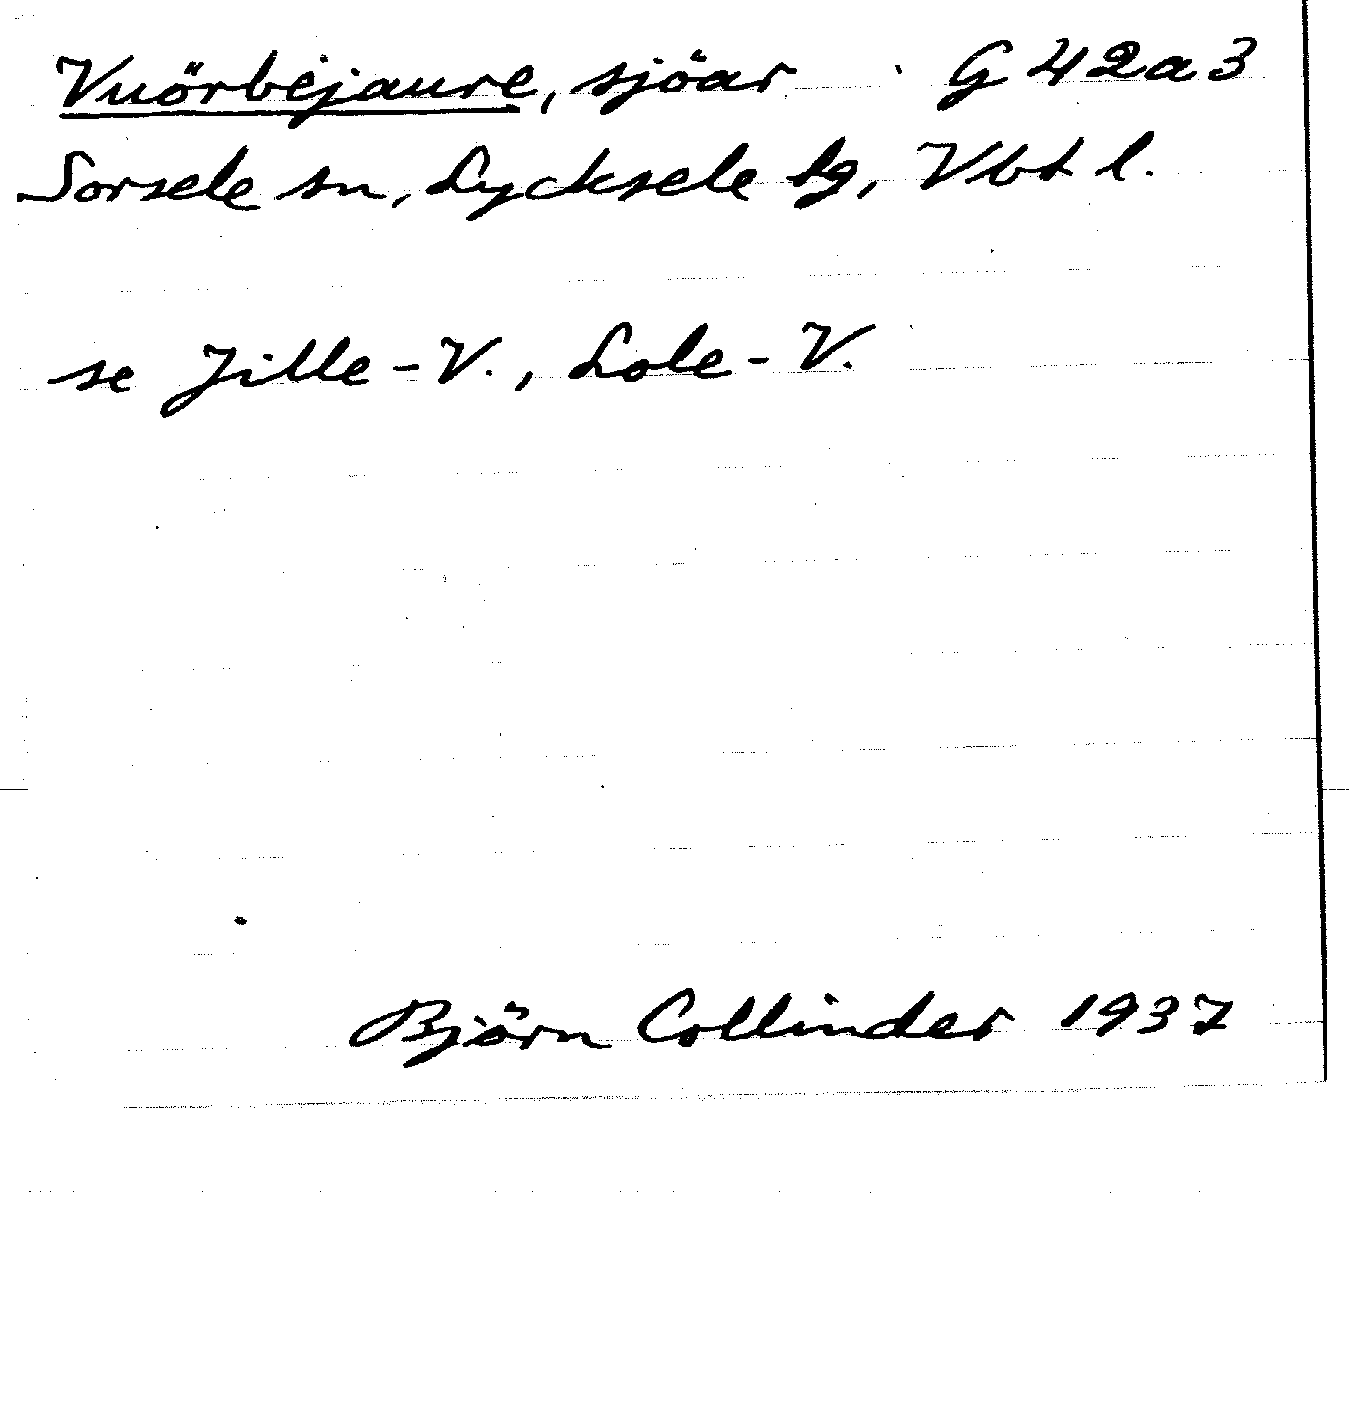 Vuörbejaure, sjöar G 42a3
Sorsele sn, Lycksele lg, Vbt l.
se Jille-V., Lole-V.
Björn Collinder 1937